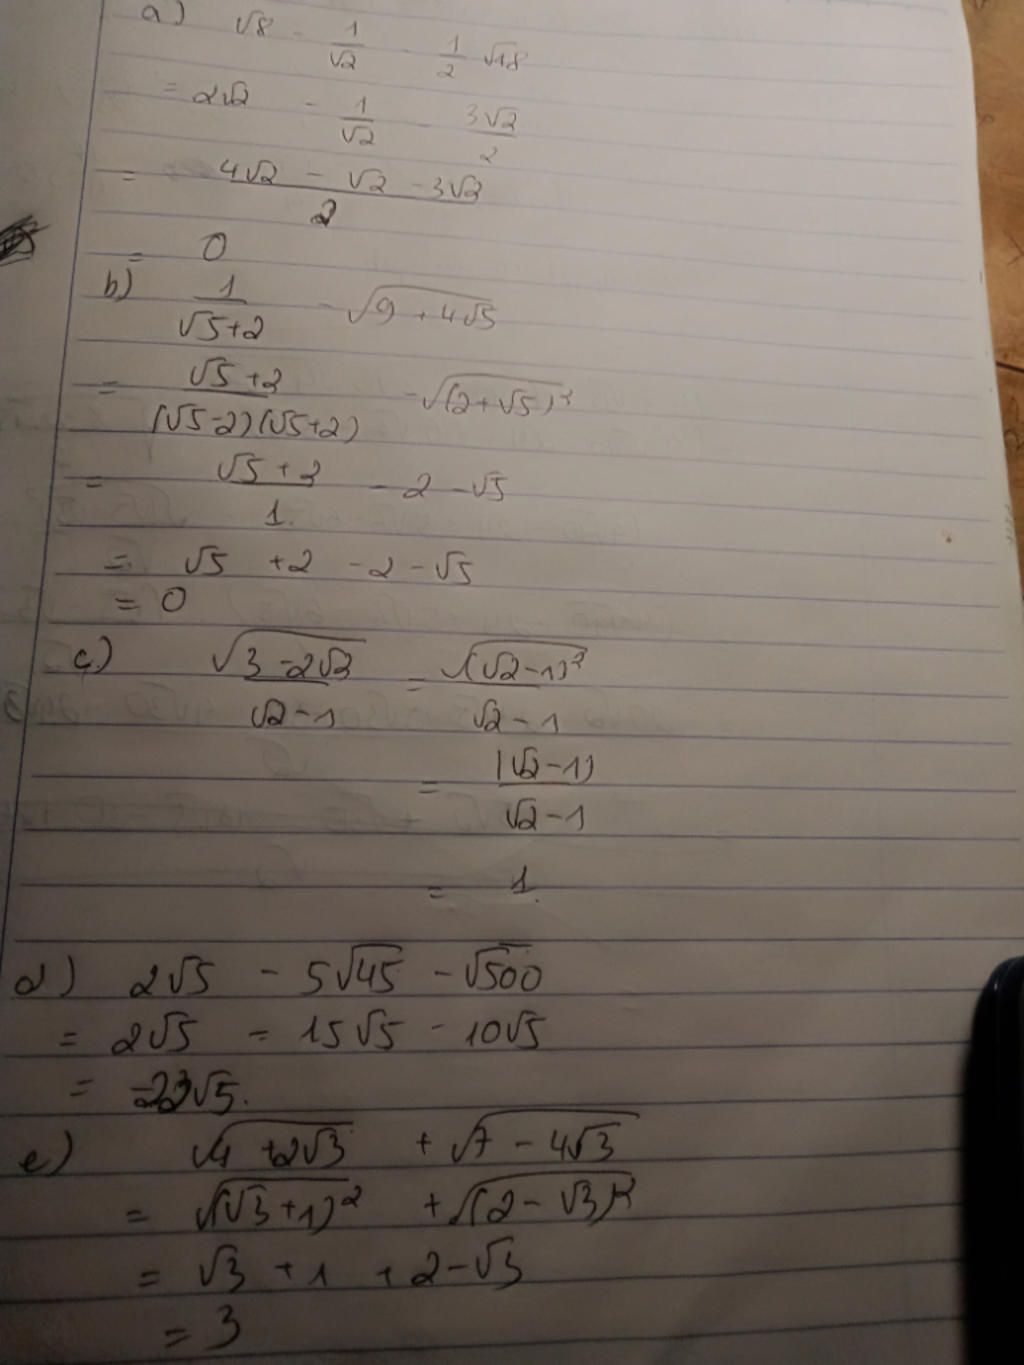 a) √8 - 1/√2 - 1/2 √18
= 2√2 - 1/√2 - 3√2/2
= (4√2 - √2 - 3√2)/2
= 0
b) 1/(√5+2) - √(9 + 4√5)
= (√5+2)/((√5-2)(√5+2)) - √((2+√5)²)
= (√5+2)/1 - 2 - √5
= √5 + 2 - 2 - √5
= 0
c) √(3-2√2)/(√2-1) = √((√2-1)²)/(√2-1)
= |√2-1|/(√2-1)
= 1.
d) 2√5 - 5√45 - √500
= 2√5 = 15√5 - 10√5
= -23√5.
e) √(4+2√3) + √(7-4√3)
= √((√3+1)²) + √((2-√3)²)
= √3 + 1 + 2-√3
= 3